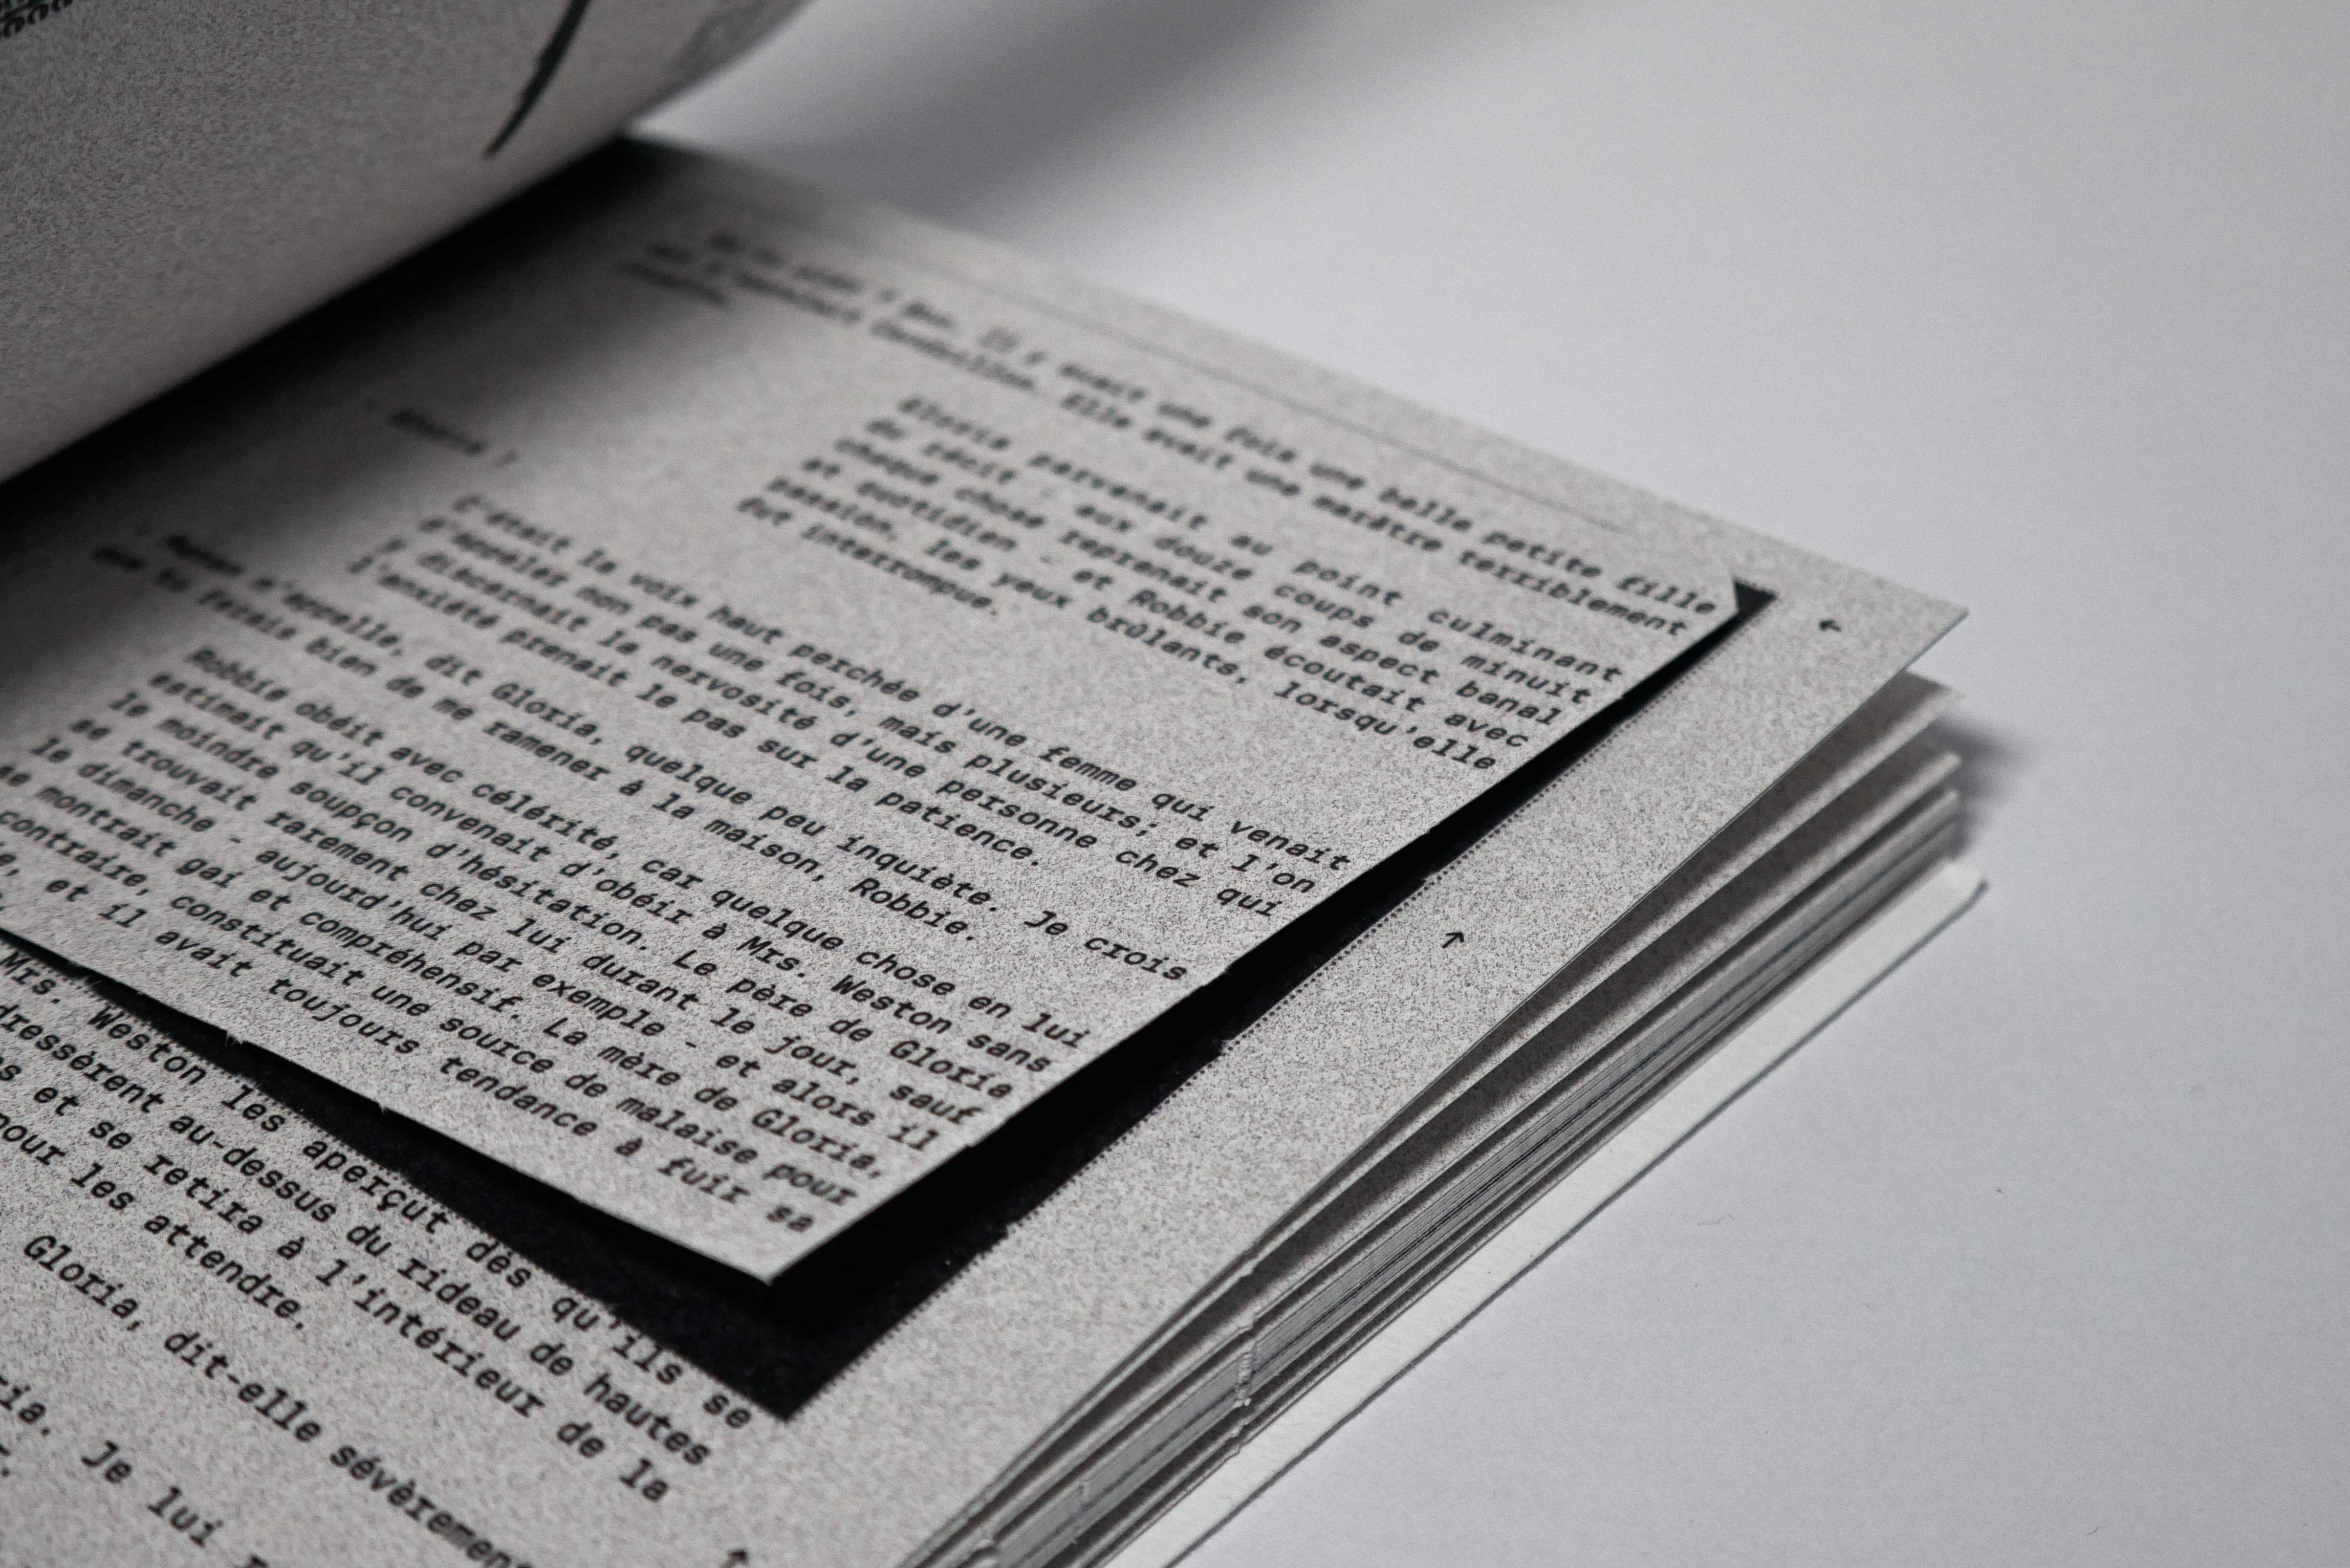 Il y avait une fois une belle petite fille
Elle avait une marâtre terriblement
Elosie parvenait au point culminant
du récit - aux douze coups de minuit
chaque chose reprenait son aspect banal
et quotidien - et Robbie écoutait avec
passion, les yeux brûlants, lorsqu'elle
fut interrompue.
- Gloria ?
C'était la voix haut perchée d'une femme qui venait
d'appeler non pas une fois, mais plusieurs; et l'on
y discernait la nervosité d'une personne chez qui
l'anxiété prenait le pas sur la patience.
- Maman m'appelle, dit Gloria, quelque peu inquiète. Je crois
que tu ferais bien de me ramener à la maison, Robbie.
Robbie obéit avec célérité, car quelque chose en lui
estimait qu'il convenait d'obéir à Mrs. Weston sans
le moindre soupçon d'hésitation. Le père de Gloria
se trouvait rarement chez lui durant le jour, sauf
le dimanche - aujourd'hui par exemple - et alors il
se montrait gai et compréhensif. La mère de Gloria,
contraire, constituait une source de malaise pour
et il avait toujours tendance à fuir sa
Mrs. Weston les aperçut dès qu'ils se
dressèrent au-dessus du rideau de hautes
et se retira à l'intérieur de la
pour les attendre.
Gloria, dit-elle sévèrement
Je lui